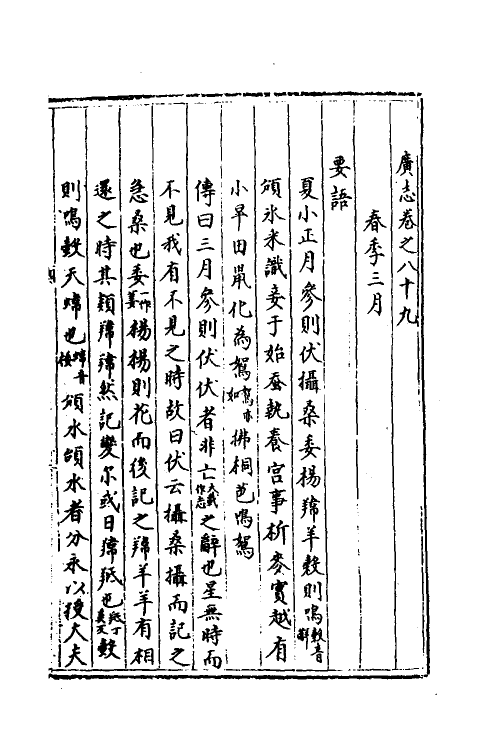 廣志卷之八十九
春季三月
要語
夏小正月參則伏攝桑委楊羜羊縠則鳴縠音斛
頒氷采識妾于始蚕執養宮事祈麥實越有
小旱田鼠化為鴽鴽亦如拂桐芭鳴鴽
傳曰三月參則伏伏者非亡大戴作忘之辭也星無時而
不見我有不見之時故曰伏云攝桑攝而記之
急桑也委一作萎楊楊則花而後記之羜羊羊有相
還之時其類羜羜然記變尔或曰羜羝也羝丁奚反縠
則鳴縠天螻也螻音 頒水頒水者分氷以授大夫